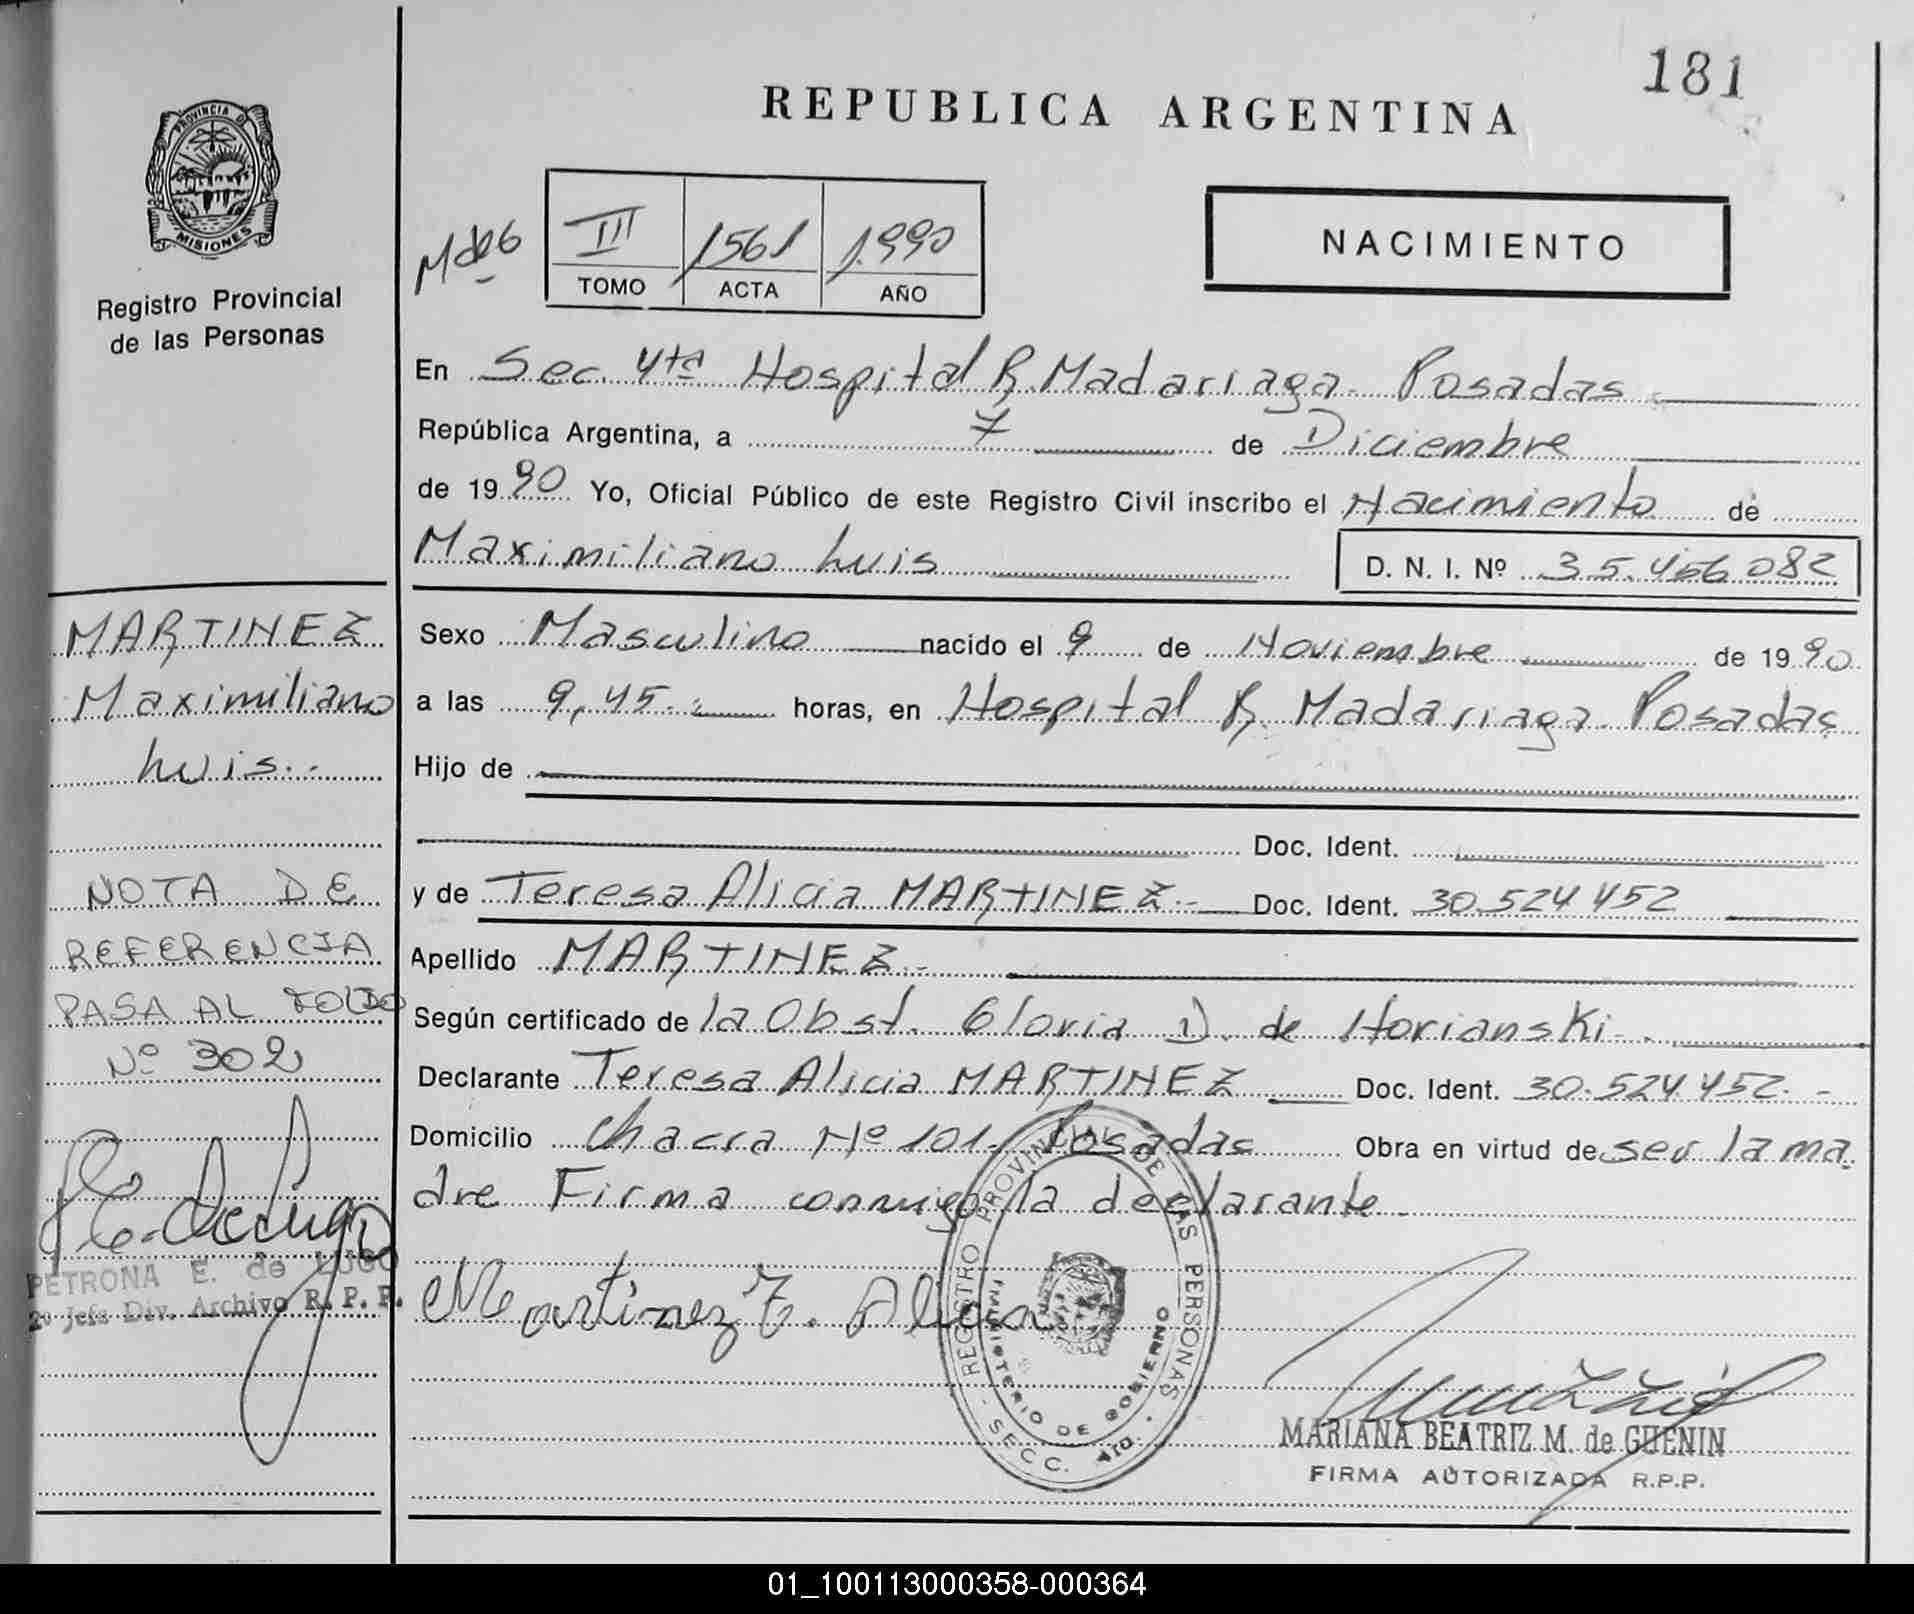 181
REPUBLICA ARGENTINA
PROVINCIA DE
MISIONES
Registro Provincial
de las Personas
III 1561 1.990
TOMO ACTA AÑO
NACIMIENTO
En Sec. 4ta Hospital R. Madariaga. Posadas
República Argentina, a 7 de Diciembre
de 1990 Yo, Oficial Público de este Registro Civil inscribo el Nacimiento de
Maximiliano Luis D. N. I. Nº 35.456.082
Sexo Masculino nacido el 9 de Noviembre de 1990
a las 9,45.- horas, en Hospital R. Madariaga. Posadas
Hijo de
Doc. Ident.
y de Teresa Alicia MARTINEZ.- Doc. Ident. 30.524.452
Apellido MARTINEZ.-
Según certificado de la Obst. Gloria D. de Horianski.-
Declarante Teresa Alicia MARTINEZ Doc. Ident. 30.524.452.-
Domicilio Chacra Nº 101. Posadas Obra en virtud de ser la ma
dre Firma conmigo la declarante.
Martinez T. Alicia
REGISTRO PROVINCIAL DE LAS PERSONAS
MINISTERIO DE GOBIERNO
SECC. 4ta.
MARIANA BEATRIZ M. de GUENIN
FIRMA AUTORIZADA R.P.P.
MARTINEZ
Maximiliano
Luis.-
NOTA DE
REFERENCIA
PASA AL FOLIO
Nº 302
PETRONA E. de LUGO
2º Jefe Div. Archivo R. P. P.
01_100113000358-000364